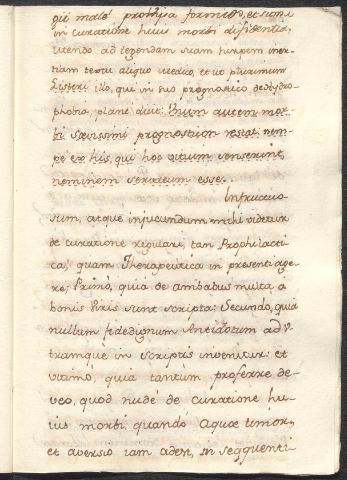 qui malè prophysa formido, et signu
in curatione huius morbi disidentia,
utendo ad tegendam suam turpem iner-
tiam textu aliquo medico, et ut plurimum
Listeri illo, qui in suo prognostico de hydro-
phobia, planè dicit: Unum autem mor-
bi Sævissimi prognosticon restat, nem-
pè ex his, qui hoc vitium senserint,
neminem servatum esse.
Infructuo
sum, atque injucundum mihi videtur
de curatione regulari, tam Prophilacti
ca, quam Therapeutica in presenti age
re; Primò, quia de ambabus multa a
bonis Viris sunt scripta: Secundò, quia
nullum fidedignum Antidotum ad v-
tramque in scriptis invenitur: et
ultimò, quia tantùm proferre de-
veo, quod nudè de curatione hu-
ius morbi, quandò aquæ timor,
et aversio iam adest, in seqquenti